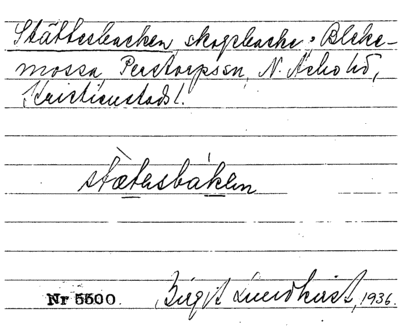 Stättesbacken, skogsbacke, Bleke-
mossa, Perstorps sn, N. Åsbo hd,
Kristianstads l.
stætesbákem
Nr 5500. Birgit Lundkvist, 1936.